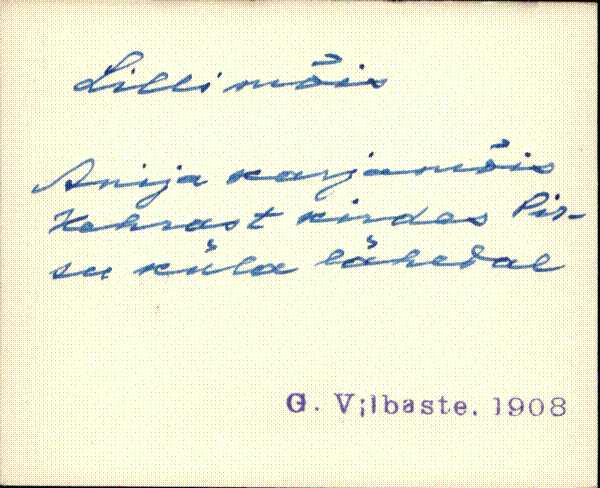 Lilli mõis
Anija karjamõis
Kehrast kirdes Pir-
su küla lähedal
G. Vilbaste. 1908